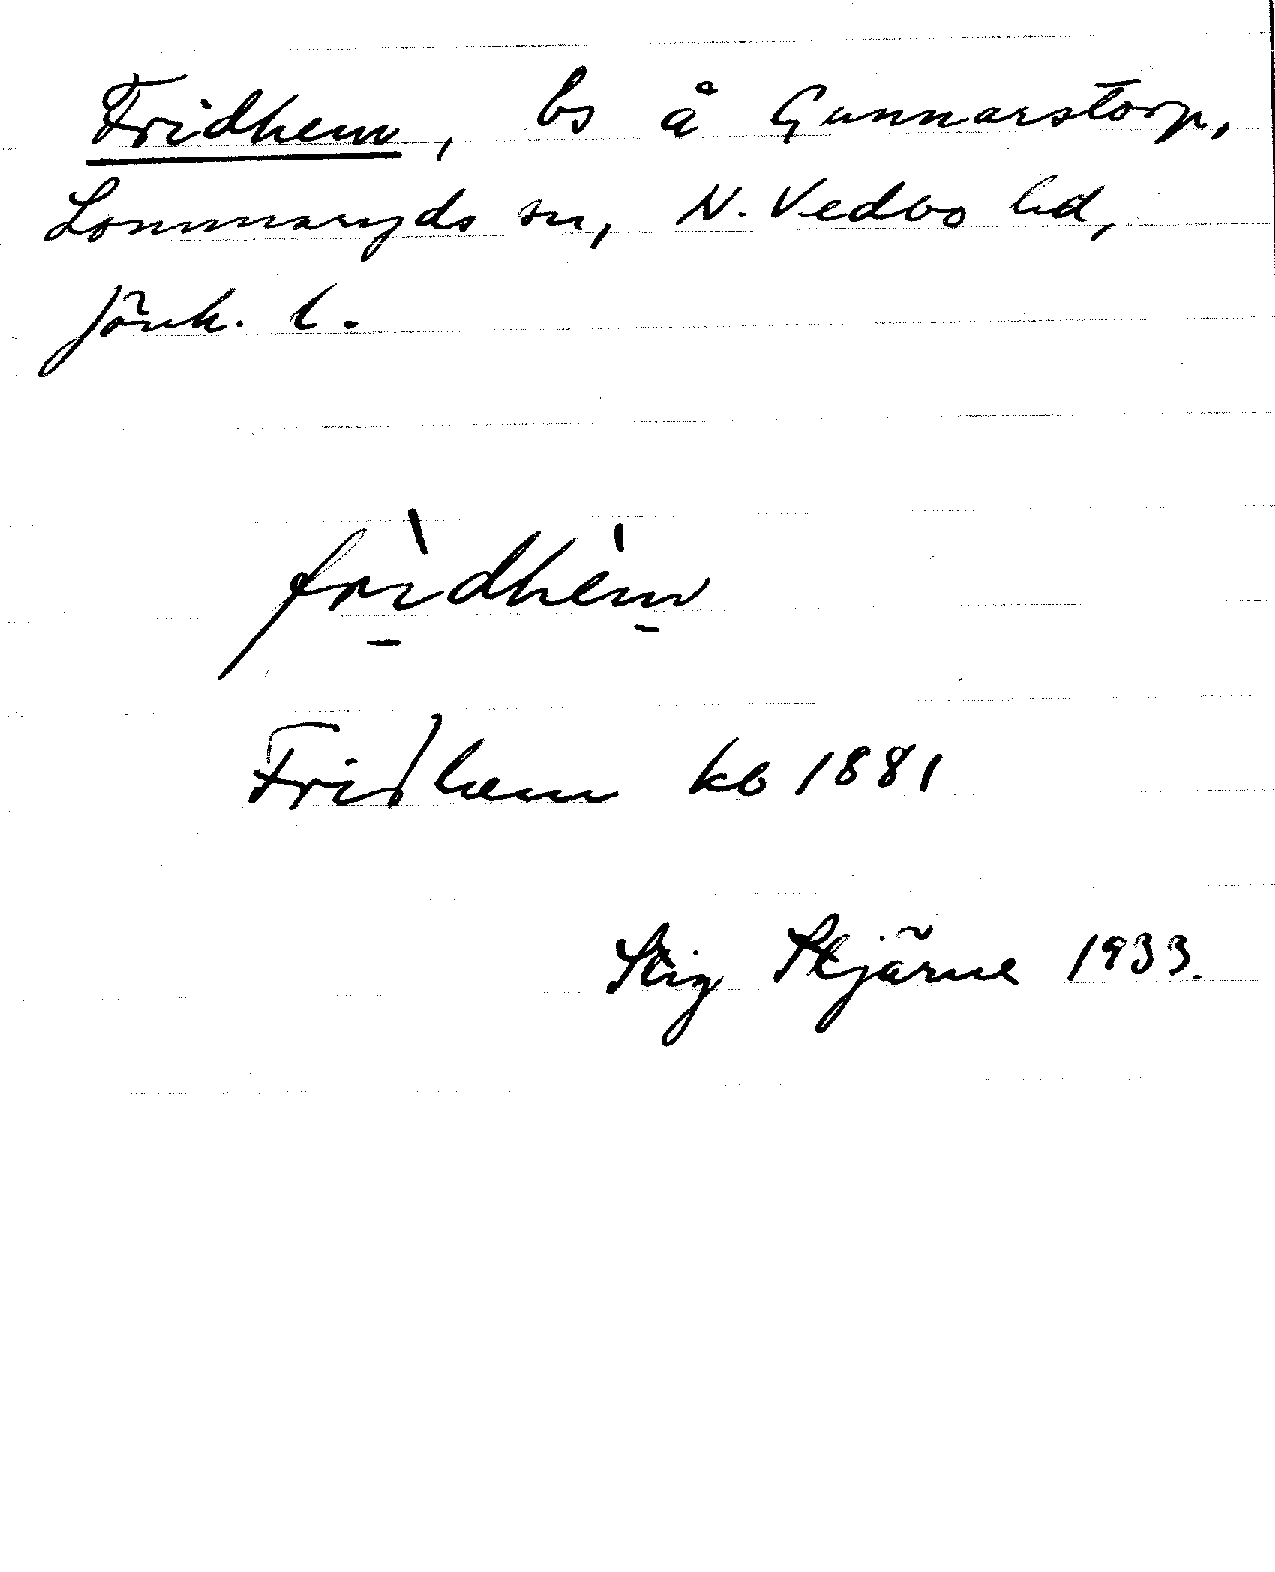 Fridhem, bs å Gunnarstorp,
Lommaryds sn, N. Vedbo hd,
Jönk. l.
frì̱dhèm̱
Fridhem kb 1881
Stig Stjärne 1933.